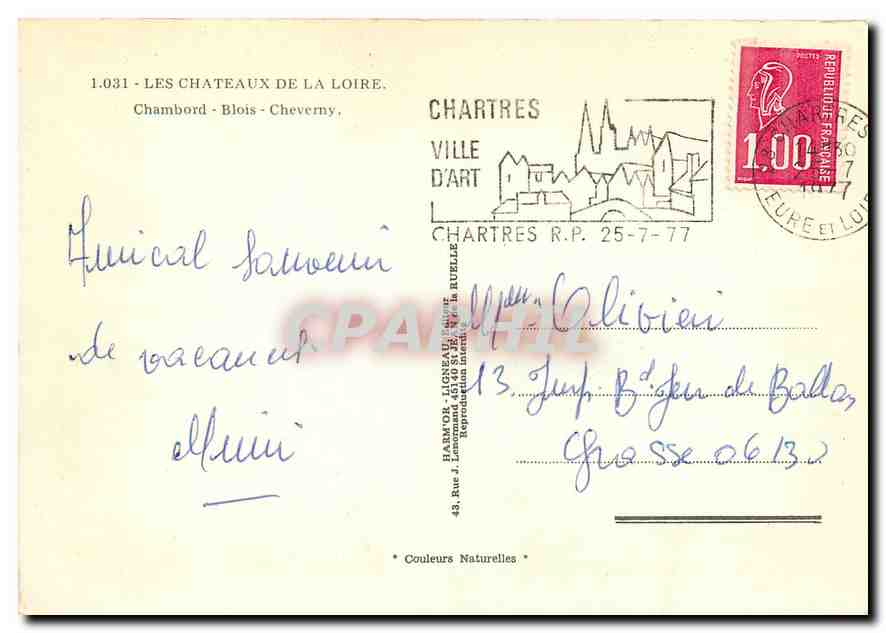 1.031 - LES CHATEAUX DE LA LOIRE.
Chambord - Blois - Cheverny.
CHARTRES
VILLE
D'ART
CHARTRES R.P. 25-7-77
POSTES
REPUBLIQUE FRANÇAISE
1,00
CHARTRES
14 30
7
1977
EURE ET LOIR
Amical Souvenir
de vacances
Mimi
HARM'OR - LIGNEAU, Editeur
43, Rue J. Lenormand 45140 St JEAN de la RUELLE
Reproduction interdite
CPAPHIL
Olivieri
13, Bd Jeu de Ballon
Grasse 06130
* Couleurs Naturelles *